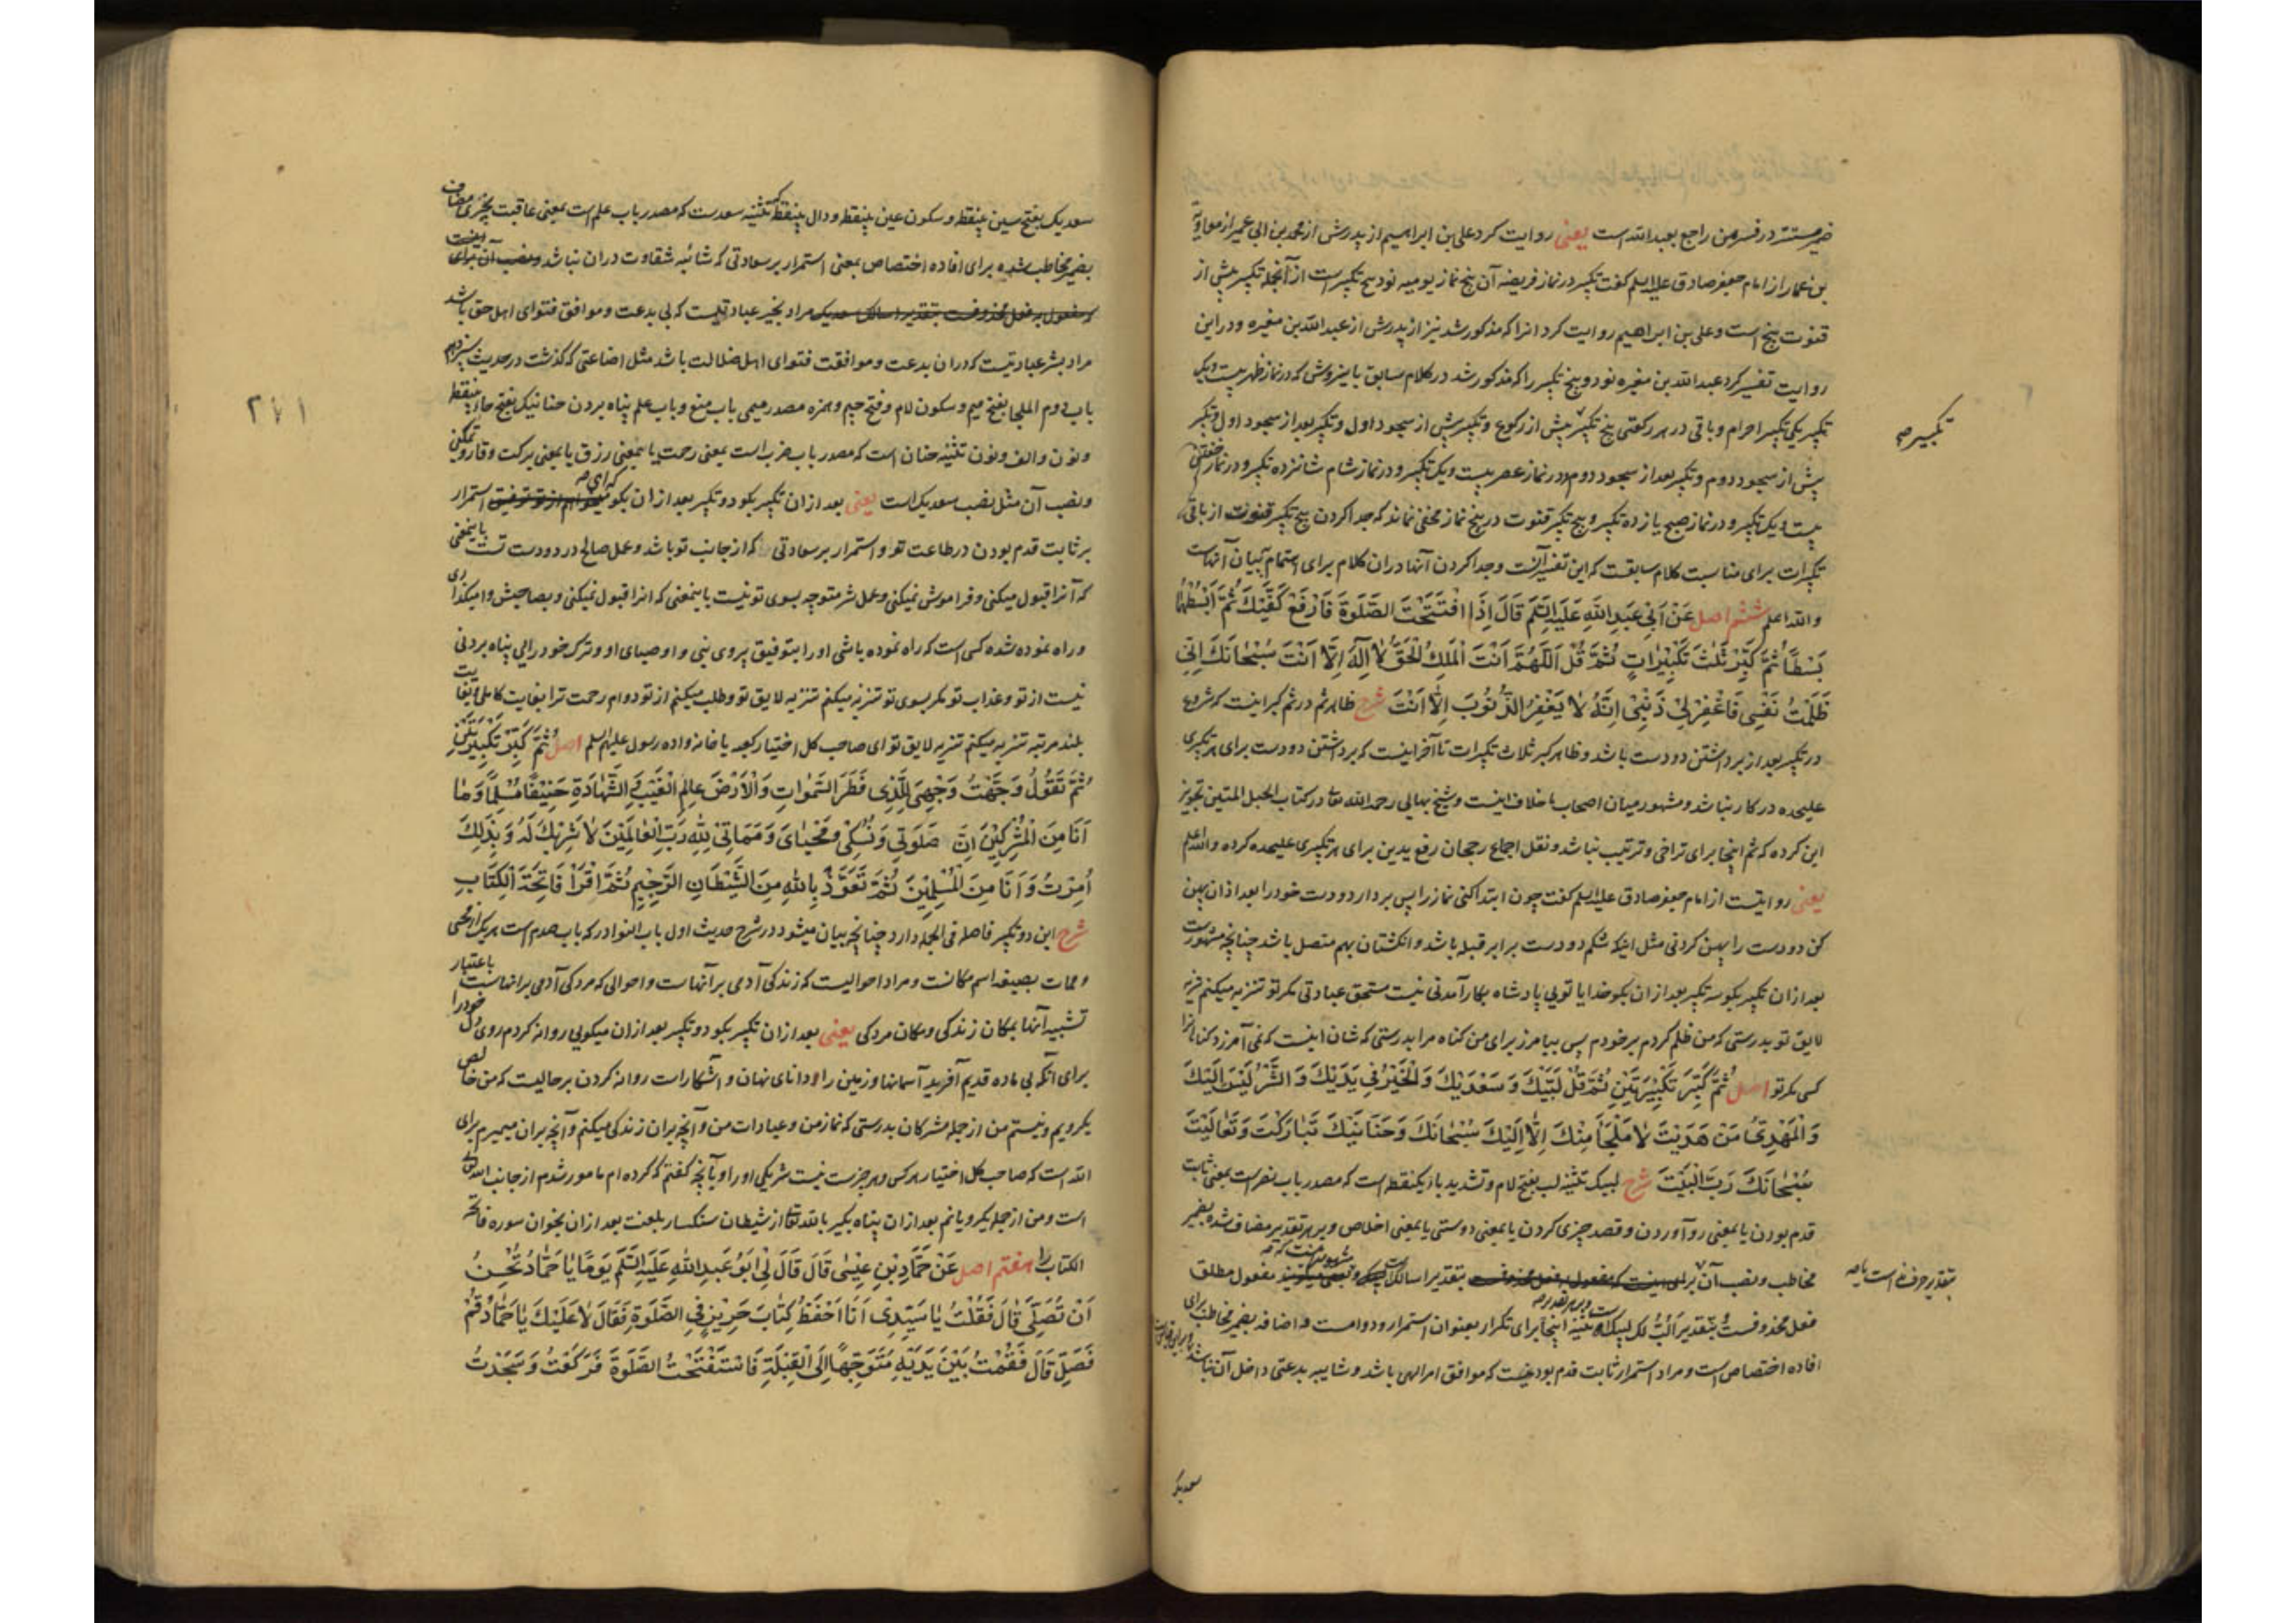 ضمیر مستتر در فسرهن راجع بعبدالله است یعنی روایت کرد علی بن ابراهیم از پدرش از محمد بن ابی عمیر از معاویة
بن عمار از امام جعفر صادق علیه السلم گفت تکبیر در نماز فریضه آن پنج نماز یومیه نود پنج تکبیر است از آنجمله تکبیر پیش از
قنوت پنج است و علی بن ابراهیم روایت کرد انرا که مذکور شد نیز از پدرش از عبدالله بن مغیره و در این
روایت تفسیر کرد عبدالله بن مغیره نود و پنج تکبیر را که مذکور شد در کلام سابق باینروش که در نماز ظهر بیست و یک
تکبیر یکی تکبیر احرام و باقی در هر رکعتی پنج تکبیر پیش از رکوع و تکبیر پیش از سجود اول و تکبیر بعد از سجود اول و تکبیر
تکبیر صح
پیش از سجود دوم و تکبیر بعد از سجود دوم و در نماز عصر بیست و یک تکبیر و در نماز شام شانزده تکبیر و در نماز خفتن
بیست و یک تکبیر و در نماز صبح یازده تکبیر و پنج تکبیر قنوت در پنج نماز مخفی نماند که جدا کردن پنج تکبیر قنوت از باقی
تکبیرات برای مناسبت کلام سابقست که این تفسیر آنست و جدا کردن آنها در ان کلام برای اهتمام ببیان آنهاست
والله اعلم ششم اصل عَنْ اَبِي عَبدِ اللهِ عَلَیهِ السَّلَم قَالَ اِذَا افْتَتَحْتَ الصَّلوةَ فَارْفَعْ كَفَّيْكَ ثُمَّ ابْسُطْهُمَا
بَسْطاً ثُمَّ كَبِّرْ ثَلٰثَ تَكْبِيرَاتٍ ثُمَّ قُلْ اَللّٰهُمَّ اَنْتَ الْمَلِكُ الْحَقُّ لَا اِلٰهَ اِلَّا اَنْتَ سُبْحَانَكَ اِنِّي
ظَلَمْتُ نَفْسِي فَاغْفِرْ لِي ذَنْبِي اِنَّهُ لَا يَغْفِرُ الذُّنُوبَ اِلَّا اَنْتَ شرح ظاهر ثم در ثم کبر اینست که شروع
در تکبیر بعد از برداشتن دو دست باشد و ظاهر کبر ثلاث تکبیرات تا آخر اینست که برداشتن دو دست برای هر تکبیری
علیحده در کار نباشد و مشهور میان اصحاب ما خلاف اینست و شیخ بهائی رحمه الله تعالی در کتاب الحبل المتین تجویز
این کرده که ثم اینجا برای تراخی و ترتیب نباشد و نقل اجماع رجحان رفع یدین برای هر تکبیری علیحده کرده والله اعلم
یعنی روایتست از امام جعفر صادق علیه السلم گفت چون ابتدا کنی نماز را پس بردار دو دست خود را بعد از ان پهن
کن دو دست را پهن کردنی مثل اینکه شکم دو دست برابر قبله باشد و انگشتان بهم متصل باشد چنانچه مشهورست
بعد از ان تکبیر بگو سه تکبیر بعد از ان بگو خدایا تویی پادشاه بکار آمدنی نیست مستحق عبادتی مگر تو تنزیه میکنم تنزیه
لایق تو بدرستی که من ظلم کردم بر خودم پس بیامرز برای من کناه مرا بدرستی که شان اینست که نمی آمرزد کناهانرا
کسی مگر تو اصل ثُمَّ كَبِّرْ تَكْبِيرَتَيْنِ ثُمَّ قُلْ لَبَّيْكَ وَ سَعْدَيْكَ وَ الْخَيْرُ فِي يَدَيْكَ وَ الشَّرُّ لَيْسَ اِلَيْكَ
وَ الْمَهْدِيُّ مَنْ هَدَيْتَ لَا مَلْجَأَ مِنْكَ اِلَّا اِلَيْكَ سُبْحَانَكَ وَ حَنَانَيْكَ تَبَارَكْتَ وَ تَعَالَيْتَ
سُبْحَانَكَ رَبَّ الْبَيْتِ شرح لبیک تثنیه لب بفتح لام و تشدید باء یکنقطه است که مصدر باب نصر است بمعنی ثابت
قدم بودن یا بمعنی رو آوردن و قصد چیزی کردن یا بمعنی دوستی یا بمعنی اخلاص و بر هر تقدیر مضاف شده بضمیر
مخاطب و نصب آن برای اینست که مفعول فعل محذوفست بتقدیر اسالک مفعول مطلق
بتقدیر حرف نداست یا صح
فعل محذوفست بتقدیر اَلُبُّ لک لبیک و تثنیه اینجا برای تکرار بعنوان استمرار و دوامست و اضافه بضمیر مخاطب برای
افاده اختصاص است و مراد استمرار ثابت قدم بودنیست که موافق امر الهی باشد و شایبه بدعتی داخل آن نباشد
سعدیک
۲۷۱
سعدیک بفتح سین بینقطه و سکون عین بینقطه و دال بینقطه تثنیه سعدست که مصدر باب علم است بمعنی عاقبت بخیری مضاف
بضمیر مخاطب شده برای افاده اختصاص بمعنی استمرار بر سعادتی که شائبه شقاوت دران نباشد و نصب آن برای اینست
که مفعول به فعل محذوفست بتقدیر اسالک سعدیک مراد بخیر عبادتیست که بی بدعت و موافق فتوای اهل حق باشد
مراد بشر عبادتیست که دران بدعت و موافقت فتوای اهل ضلالت باشد مثل اضاعتی که گذشت در حدیث
باب دوم الملجا بفتح میم و سکون لام و فتح جیم و همزه مصدر میمی باب منع و باب علم پناه بردن حنانیک بفتح حاء بینقطه
و نون و الف و نون تثنیه حنان است که مصدر باب ضرب است بمعنی رحمت یا بمعنی رزق یا بمعنی برکت و وقار و تمکین
و نصب آن مثل نصب سعدیک است یعنی بعد از ان تکبیر بگو دو تکبیر بعد از ان بگو میخواهم از تو توفیق استمرار
بر ثابت قدم بودن در طاعت تو و استمرار بر سعادتی که از جانب تو باشد و عمل صالح در دو دست تست باینمعنی
که آنرا قبول میکنی و فراموش نمیکنی و عمل شر متوجه بسوی تو نیست باینمعنی که انرا قبول نمیکنی و بصاحبش وامیگذاری
و راه نموده شده کسی است که راه نموده باشی او را بتوفیق پیروی نبی و اوصیای او و ترک خودرایی پناه بردنی
نیست از تو و عذاب تو مگر بسوی تو تنزیه میکنم تنزیه لایق تو و طلب میکنم از تو دوام رحمت ترا بغایت کاملی و بغایت
بلند مرتبه تنزیه میکنم تنزیه لایق تو ای صاحب کل اختیار کعبه یا خانواده رسول علیهم السلم اصل ثُمَّ كَبِّرْ تَكْبِيرَتَيْنِ
ثُمَّ تَقُولُ وَجَّهْتُ وَجْهِيَ لِلَّذِي فَطَرَ السَّمٰوَاتِ وَالْاَرْضَ عَالِمِ الْغَيْبِ وَ الشَّهَادَةِ حَنِيفاً مُسْلِماً وَ مَا
اَنَا مِنَ الْمُشْرِكِينَ اِنَّ صَلَوتِي وَ نُسُكِي وَ مَحْيَايَ وَ مَمَاتِي لِلّٰهِ رَبِّ الْعَالَمِينَ لَا شَرِيكَ لَهُ وَ بِذٰلِكَ
اُمِرْتُ وَ اَنَا مِنَ الْمُسْلِمِينَ ثُمَّ تَعَوَّذْ بِاللهِ مِنَ الشَّيْطَانِ الرَّجِيمِ ثُمَّ اقْرَأْ فَاتِحَةَ الْكِتَابِ
شرح این دو تکبیر فاصله فی الجمله دارد چنانچه بیان میشود در شرح حدیث اول باب النوادر که باب صدم است هر یک از محیی
و ممات بصیغه اسم مکانست و مراد احوالیست که زندگی آدمی بر آنهاست و احوالی که مردگی آدمی بر انهاست باعتبار
تشبیه آنها بمکان زندگی و مکان مردگی یعنی بعد از ان تکبیر بگو دو تکبیر بعد از ان میگویی روانه کردم روی دل خود را
برای آنکه بی ماده قدیم آفرید آسمانها و زمین را و دانای نهان و آشکار است روانه کردن بر حالیست که من خالص
یکرویم و نیستم من از جمله مشرکان بدرستی که نماز من و عبادات من و آنچه بران زندگی میکنم و آنچه بران میمیرم برای
الله است که صاحب کل اختیار هر کس و هر چیزست نیست شریکی او را و بآنچه گفتم که کرده ام مامور شدم از جانب الله تعالی
است و من از جمله یکرویانم بعد از ان پناه بگیر بالله تعالی از شیطان سنگسار بلعنت بعد از ان بخوان سوره فاتحة
الکتاب را هفتم اصل عَنْ حَمَّادِ بْنِ عِيسٰى قَالَ قَالَ لِي اَبُو عَبدِ اللهِ عَلَيهِ السَّلَم يَوْماً يَا حَمَّادُ تُحْسِنُ
اَنْ تُصَلِّيَ قَالَ فَقُلْتُ يَا سَيِّدِي اَنَا اَحْفَظُ كِتَابَ حَرِيزٍ فِي الصَّلَوةِ فَقَالَ لَا عَلَيْكَ يَا حَمَّادُ قُمْ
فَصَلِّ قَالَ فَقُمْتُ بَيْنَ يَدَيْهِ مُتَوَجِّهاً اِلَى الْقِبْلَةِ فَاسْتَفْتَحْتُ الصَّلَوةَ فَرَكَعْتُ وَ سَجَدْتُ